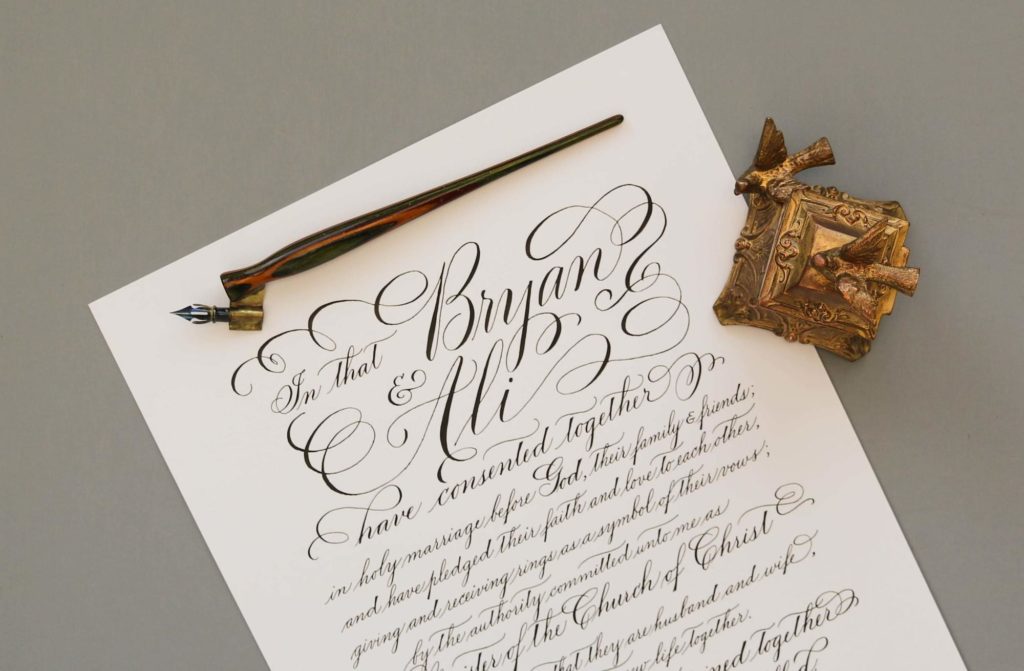 In that
Bryan
& Ali
have consented together
in holy marriage before God, their family & friends;
and have pledged their faith and love to each other,
giving and receiving rings as a symbol of their vows;
by the authority committed unto me as
of the Church of Christ &
that they are husband and wife,
life together.
together